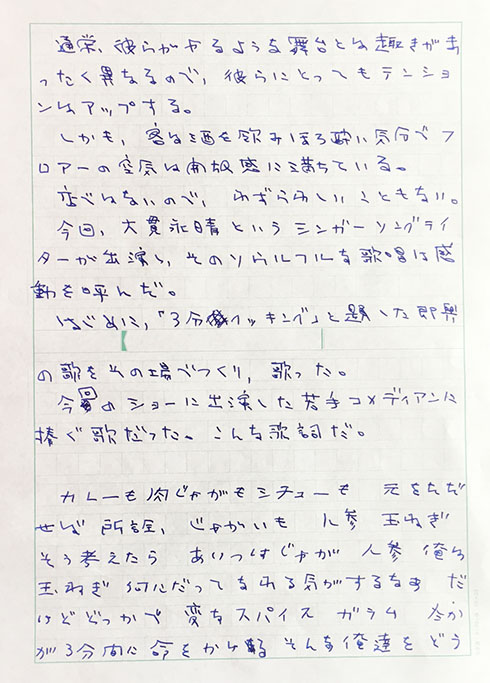 通常、彼らがやるような舞台とは趣きがま
ったく異なるので、彼らにとってもテンショ
ンはアップする。
しかも、客は酒を飲みほろ酔い気分でフ
ロアーの空気は開放感に満ちている。
店ではないので、わずらわしいこともない。
今回、大貫永晴というシンガーソングライ
ターが出演し、そのソウルフルな歌唱は感
動を呼んだ。
はじめに、「3分クッキング」と題した即興
の歌をその場でつくり、歌った。
今回のショーに出演した若手コメディアンに
捧ぐ歌だった。こんな歌詞だ。
カレーも肉じゃがもシチューも 元をただ
せば 所詮、じゃがいも 人参 玉ねぎ
そう考えたら あいつはじゃが 人参 俺は
玉ねぎ 何にだってなれる気がするなぁ だ
けどどっかで 変なスパイス ガラム
が3分間に命をかける そんな俺達をどう